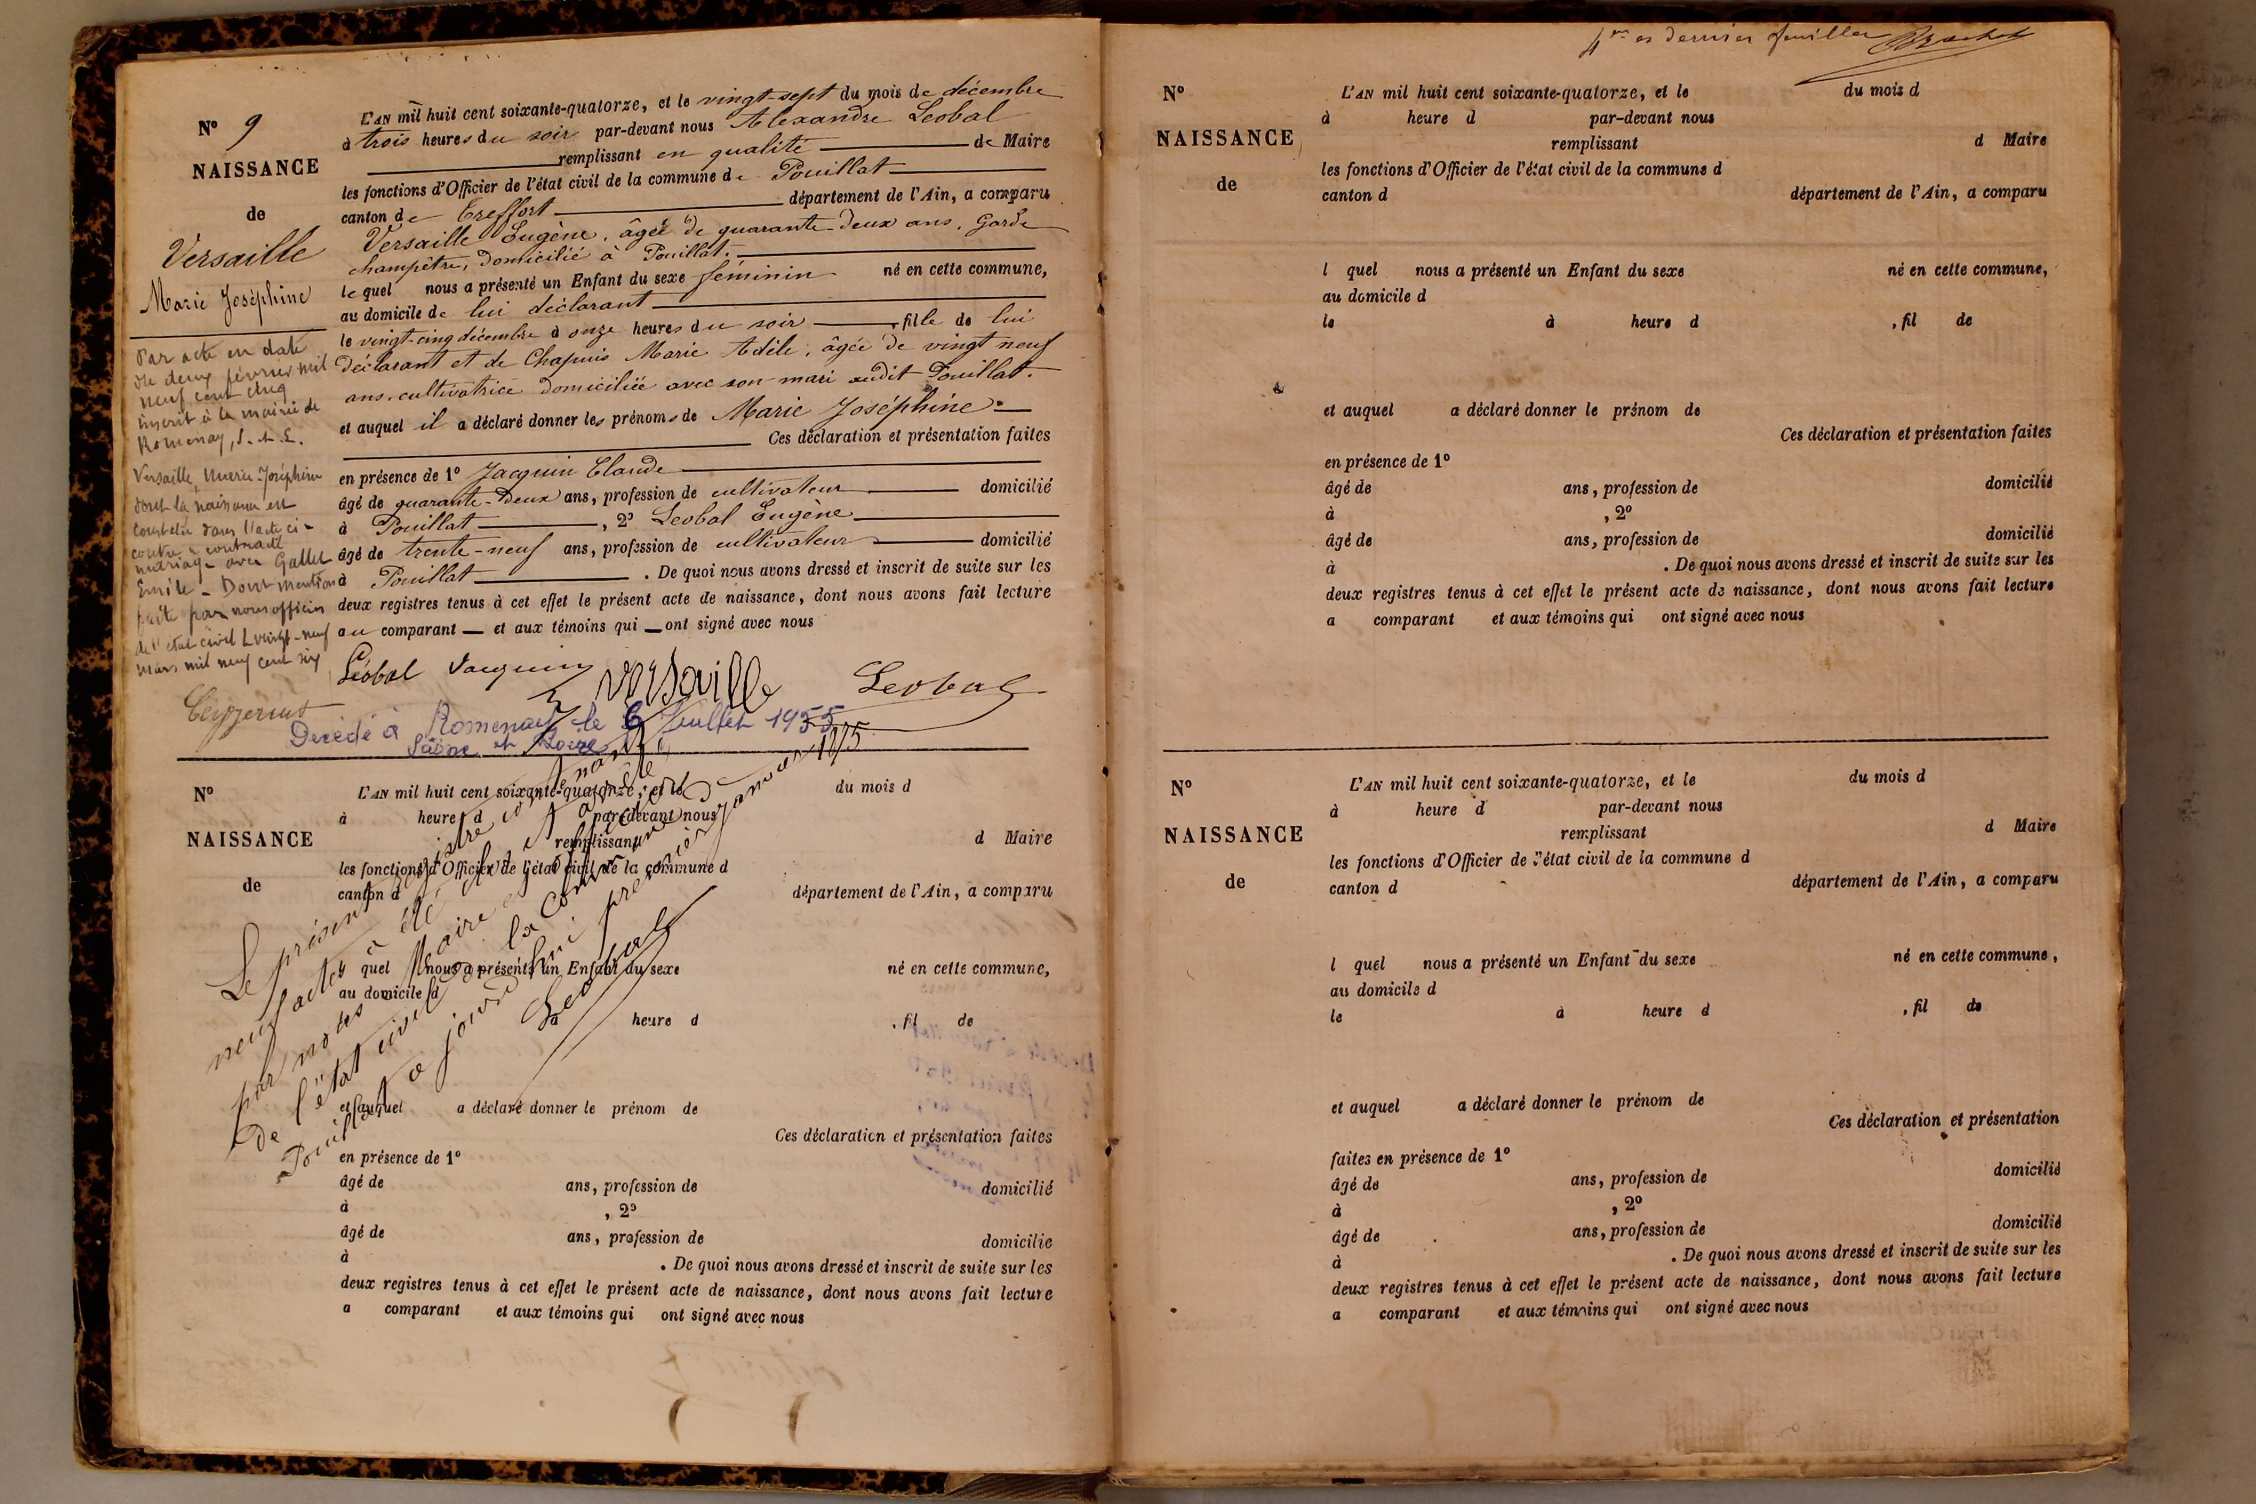 N° 9
NAISSANCE
de
Versaille
Marie Joséphine
Par acte en date
du deux février mil
neuf cent cinq
inscrit à la mairie de
Romenay, S. et L.
Versaille, Marie-Joséphine
dont la naissance est
constatée dans l'acte ci-
contre a contracté
mariage avec Gallet
Emile - Dont mention
faite par nous officier
de l'état civil le vingt-neuf
mars mil neuf cent six
L'AN mil huit cent soixante-quatorze, et le vingt-sept du mois de décembre
à trois heures du soir par-devant nous Alexandre Leobal
remplissant en qualité de Maire
les fonctions d'Officier de l'état civil de la commune de Pouillat
canton de Treffort département de l'Ain, a comparu
Versaille Eugène, âgé de quarante-deux ans, Garde
champêtre, domicilié à Pouillat.
lequel nous a présenté un Enfant du sexe féminin né en cette commune,
au domicile de lui déclarant
le vingt-cinq décembre à onze heures du soir, fille de lui
déclarant et de Chapuis Marie Adèle, âgée de vingt neuf
ans, cultivatrice domiciliée avec son mari audit Pouillat.
et auquel il a déclaré donner les prénoms de Marie Joséphine.
Ces déclaration et présentation faites
en présence de 1° Jacquin Claude
âgé de quarante-deux ans, profession de cultivateur domicilié
à Pouillat, 2° Leobal Eugène
âgé de trente-neuf ans, profession de cultivateur domicilié
à Pouillat. De quoi nous avons dressé et inscrit de suite sur les
deux registres tenus à cet effet le présent acte de naissance, dont nous avons fait lecture
au comparant et aux témoins qui ont signé avec nous
Léobal Jacquin Versaille Leobal
Decédé à Romenay le 6 Juillet 1955
Saône et Loire
N°
NAISSANCE
de
L'AN mil huit cent soixante-quatorze, et le du mois d
à heure d par-devant nous
remplissant d Maire
les fonctions d'Officier de l'état civil de la commune d
canton d département de l'Ain, a comparu
l quel nous a présenté un Enfant du sexe né en cette commune,
au domicile d
à heure d , fil de
et auquel a déclaré donner le prénom de
Ces déclaration et présentation faites
en présence de 1°
âgé de ans, profession de domicilié
à , 2°
âgé de ans, profession de domicilié
à . De quoi nous avons dressé et inscrit de suite sur les
deux registres tenus à cet effet le présent acte de naissance, dont nous avons fait lecture
a comparant et aux témoins qui ont signé avec nous
Le présent registre contenant
neuf actes a été clos et arrêté
par nous Maire et officier
de l'état civil de la commune de
Pouillat aujourd'hui premier janvier 1875
Leobal
4me et dernier feuillet
N°
NAISSANCE
de
L'AN mil huit cent soixante-quatorze, et le du mois d
à heure d par-devant nous
remplissant d Maire
les fonctions d'Officier de l'état civil de la commune d
canton d département de l'Ain, a comparu
l quel nous a présenté un Enfant du sexe né en cette commune,
au domicile d
le à heure d , fil de
et auquel a déclaré donner le prénom de
Ces déclaration et présentation faites
en présence de 1°
âgé de ans, profession de domicilié
à , 2°
âgé de ans, profession de domicilié
à . De quoi nous avons dressé et inscrit de suite sur les
deux registres tenus à cet effet le présent acte de naissance, dont nous avons fait lecture
a comparant et aux témoins qui ont signé avec nous
N°
NAISSANCE
de
L'AN mil huit cent soixante-quatorze, et le du mois d
à heure d par-devant nous
remplissant d Maire
les fonctions d'Officier de l'état civil de la commune d
canton d département de l'Ain, a comparu
l quel nous a présenté un Enfant du sexe né en cette commune,
au domicile d
le à heure d , fil de
et auquel a déclaré donner le prénom de
Ces déclaration et présentation
faites en présence de 1°
âgé de ans, profession de domicilié
à , 2°
âgé de ans, profession de domicilié
à . De quoi nous avons dressé et inscrit de suite sur les
deux registres tenus à cet effet le présent acte de naissance, dont nous avons fait lecture
a comparant et aux témoins qui ont signé avec nous